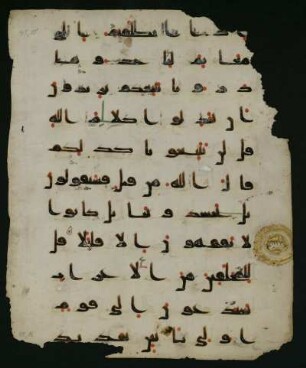 اذا انطلقتم الى
مغانم لتاخذوها
ذرونا نتبعكم يريدون
ان يبدلوا كلام الله
قل لن تتبعونا كذلكم
قال الله من قبل فسيقولون
بل تحسدوننا بل كانوا
لا يفقهون الا قليلا قل
للمخلفين من الاعراب
ستدعون الى قوم
اولي باس شديد